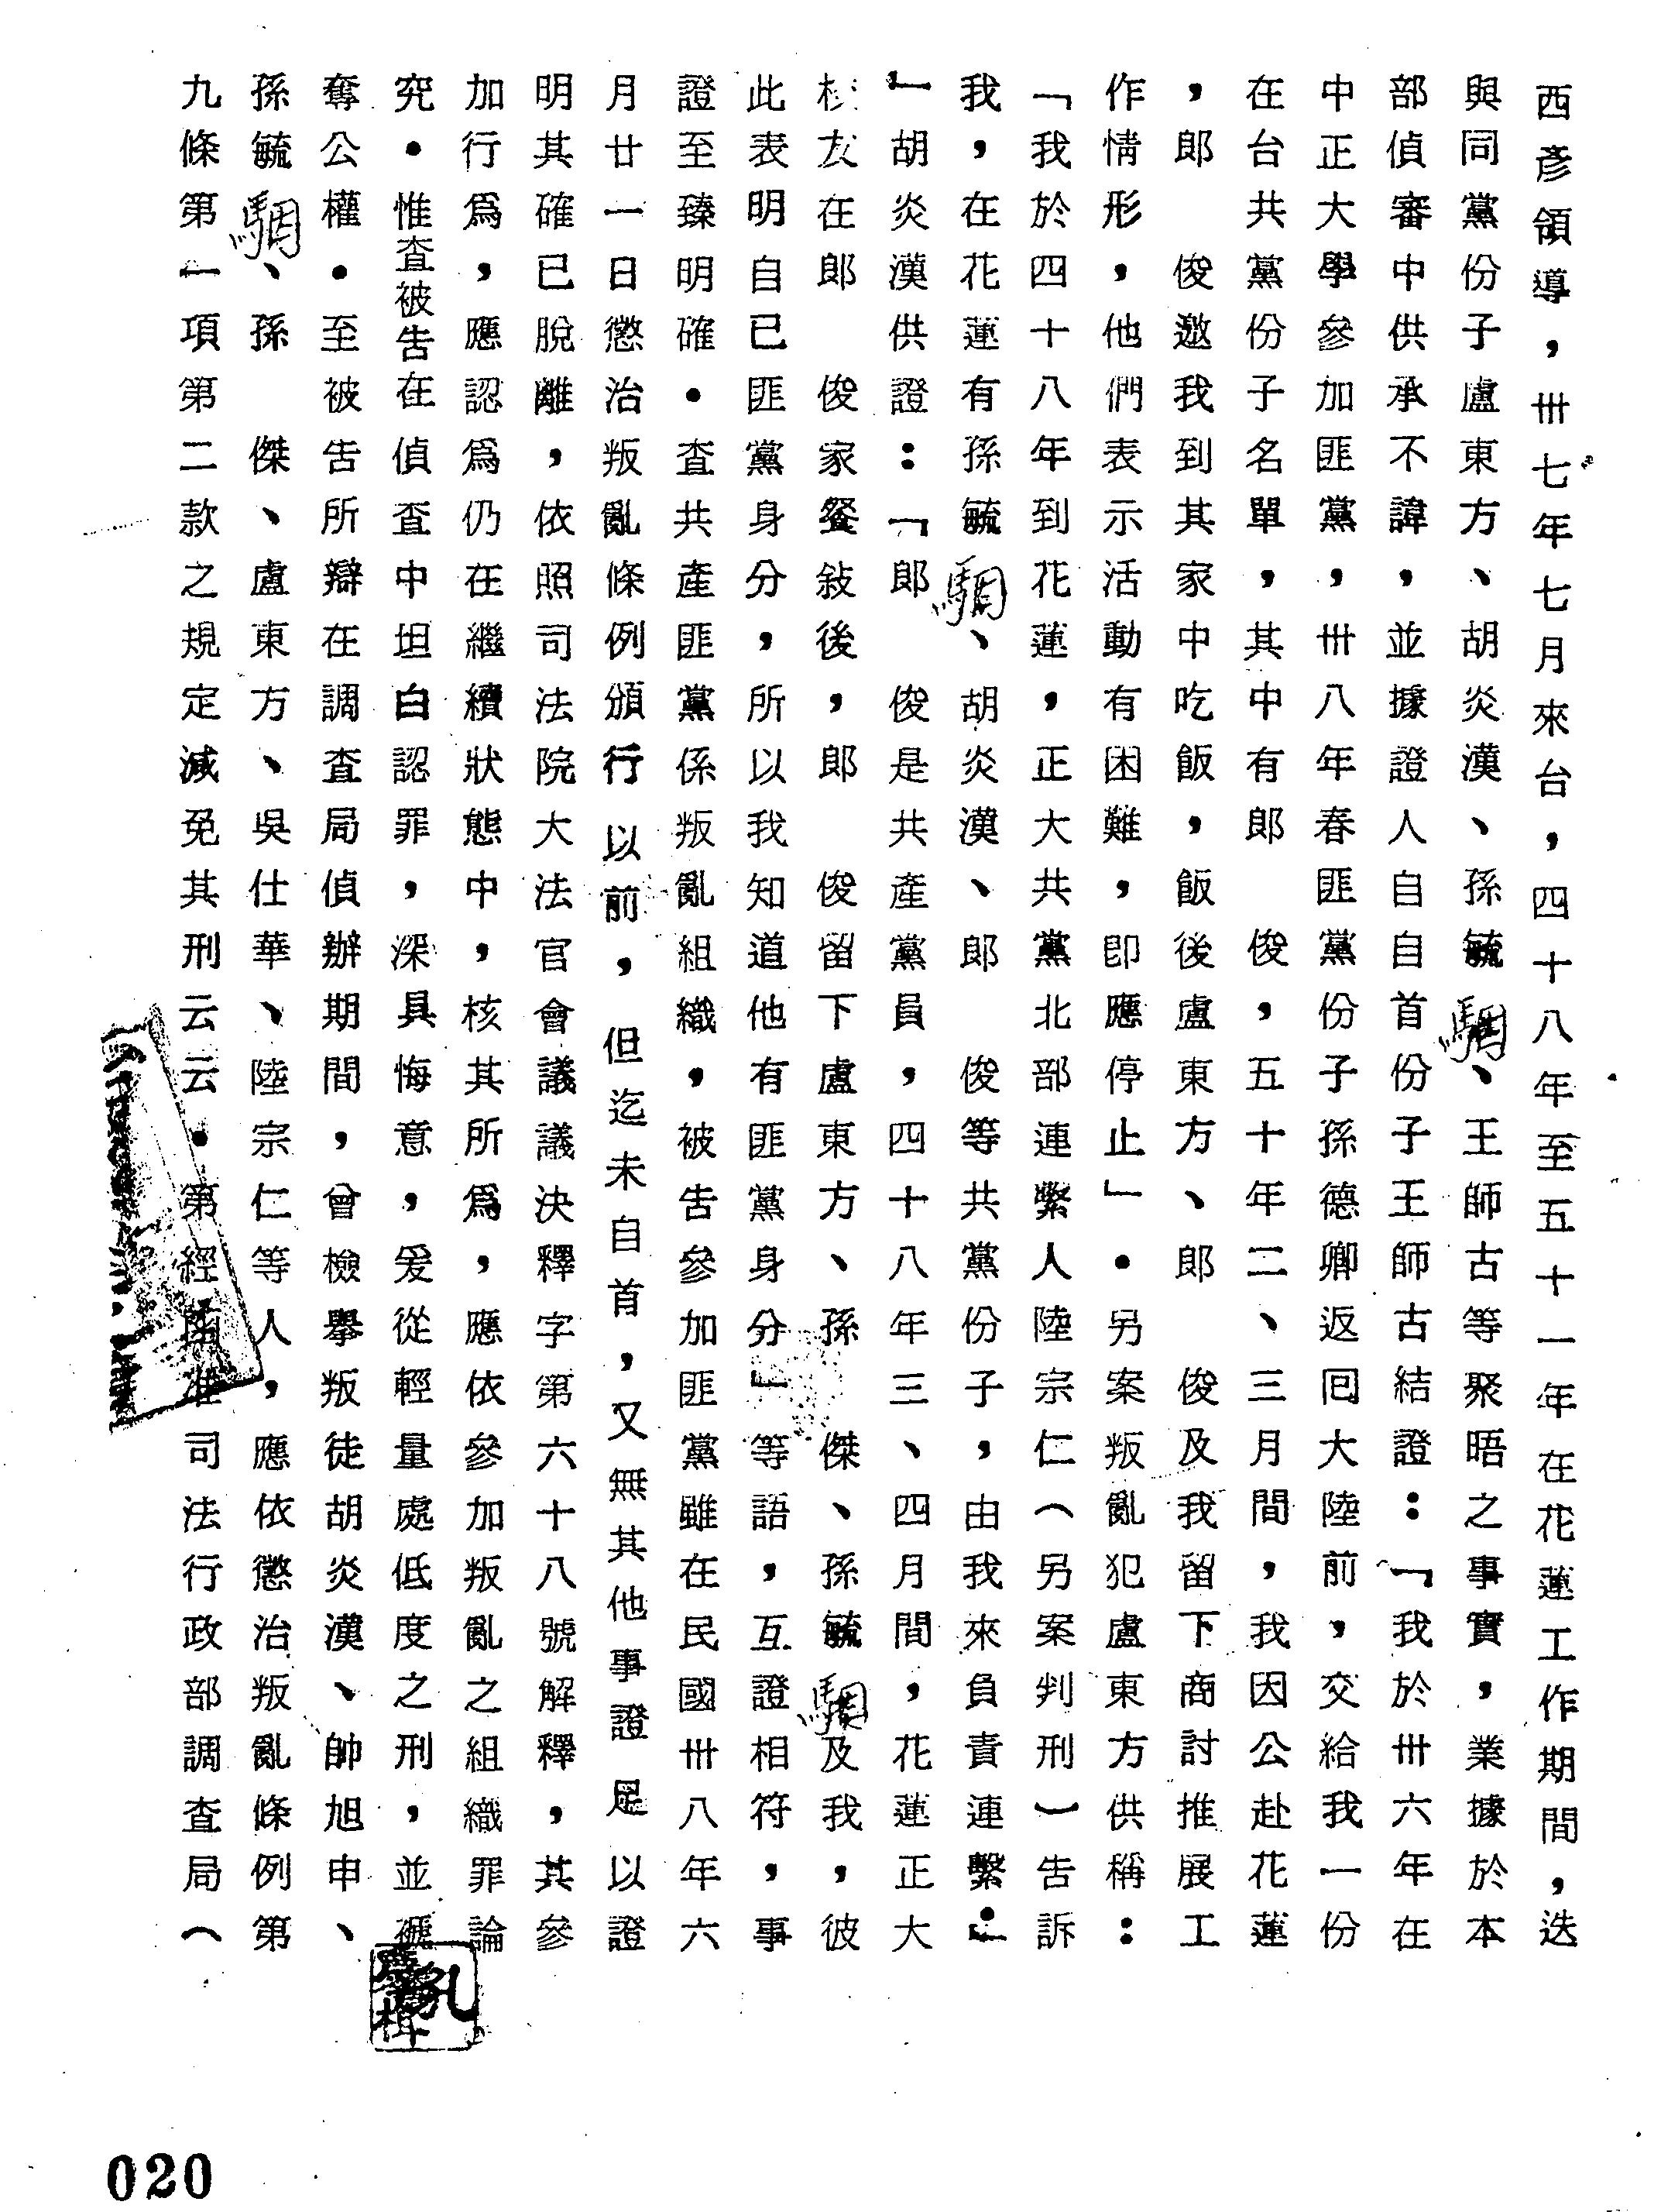 西彥領導，卅七年七月來台，四十八年至五十一年在花蓮工作期間，迭
與同黨份子盧東方、胡炎漢、孫毓駽、王師古等聚晤之事實，業據於本
部偵審中供承不諱，並據證人自自首份子王師古結證：「我於卅六年在
中正大學參加匪黨，卅八年春匪黨份子孫德卿返囘大陸前，交給我一份
在台共黨份子名單，其中有郎　俊，五十年二、三月間，我因公赴花蓮
，郎　俊邀我到其家中吃飯，飯後盧東方、郎　俊及我留下商討推展工
作情形，他們表示活動有困難，卽應停止」．另案叛亂犯盧東方供稱：
「我於四十八年到花蓮，正大共黨北部連繫人陸宗仁（另案判刑）告訴
我，在花蓮有孫毓駽、胡炎漢、郎　俊等共黨份子，由我來負責連繫．」
」胡炎漢供證：「郎　俊是共產黨員，四十八年三、四月間，花蓮正大
校友在郎　俊家餐敍後，郎　俊留下盧東方、孫　傑、孫毓駽及我，彼
此表明自已匪黨身分，所以我知道他有匪黨身分」等語，互證相符，事
證至臻明確．查共產匪黨係叛亂組織，被告參加匪黨雖在民國卅八年六
月廿一日懲治叛亂條例頒行以前，但迄未自首，又無其他事證足以證
明其確已脫離，依照司法院大法官會議議決釋字第六十八號解釋，其參
加行爲，應認爲仍在繼續狀態中，核其所爲，應依參加叛亂之組織罪論
究．惟查被告在偵查中坦白認罪，深具悔意，爰從輕量處低度之刑，並褫
奪公權．至被告所辯在調查局偵辦期間，曾檢舉叛徒胡炎漢、帥旭申、
孫毓駽、孫　傑、盧東方、吳仕華、陸宗仁等人，應依懲治叛亂條例第
九條第一項第二款之規定減免其刑云云．第經函准司法行政部調查局（
020